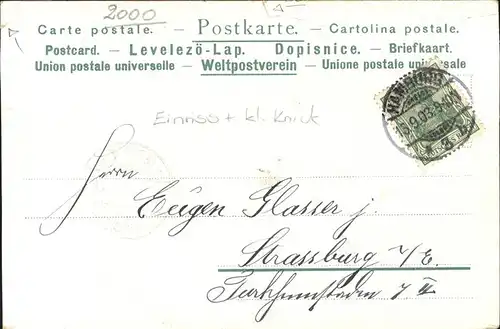 2000
Carte postale. – Postkarte. – Cartolina postale.
Postcard. – Levelezö-Lap. Dopisnice. – Briefkaart.
Union postale universelle – Weltpostverein – Unione postale universale
HAMBURG
15.9.03.
Einriss + kl. Knick
Herrn
Eugen Glasser j.
Strassburg i/E.
7 II